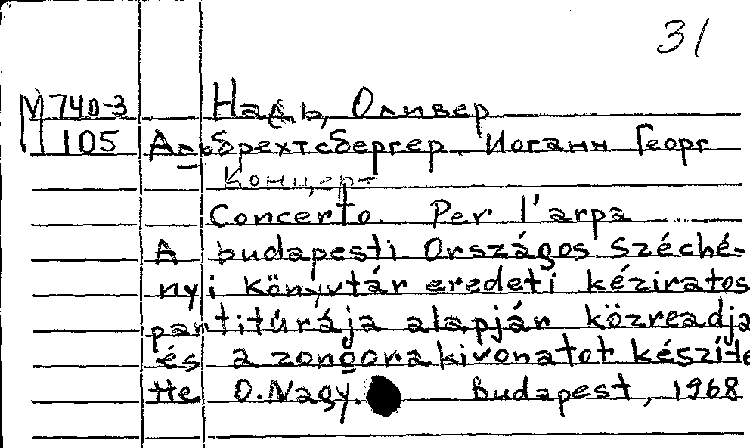 31
М 740-3 Надь, Оливер
105 Альбрехтсбергер Иоганн Георг
Концерт
Concerto. Per l'arpa
A budapesti Országos Széché-
nyi könyvtár eredeti kéziratos
partitúrája alapján közreadja
és a zongorakivonatot készíte
tte O. Nagy. Budapest, 1968